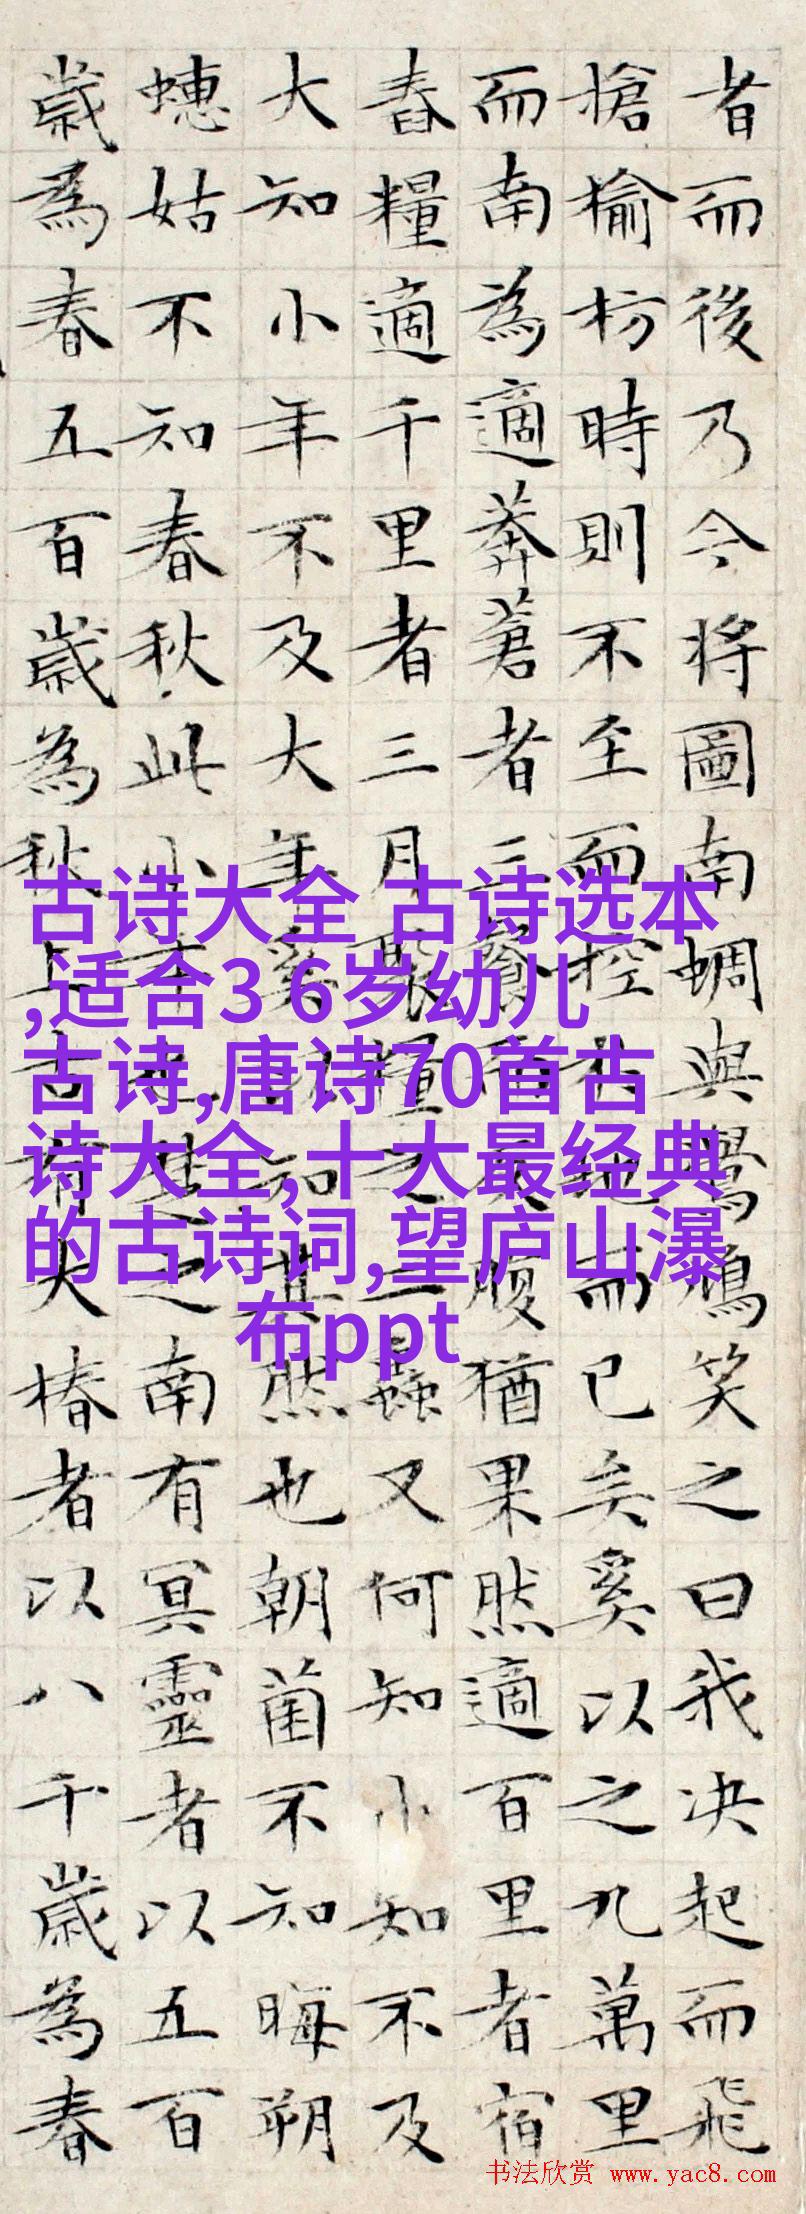 者而後乃今將圖南蜩與鷽鳩笑之曰我决起而飛
搶榆枋時則不至而控於地而已矣奚以之九萬里
而南為適莽蒼者三飡而反腹猶果然適百里者宿
舂糧適千里者三月聚糧之二蟲又何知小知不及
大知小年不及大年奚以知其然也朝菌不知晦朔
蟪姑不知春秋此小年也楚之南有冥靈者以五百
歲為春五百歲為秋上古有大椿者以八千歲為春
古诗大全 古诗选本
,适合3 6岁幼儿
古诗,唐诗70首古
诗大全,十大最经典
的古诗词,望庐山瀑
布ppt
书法欣赏 www.yac8.com